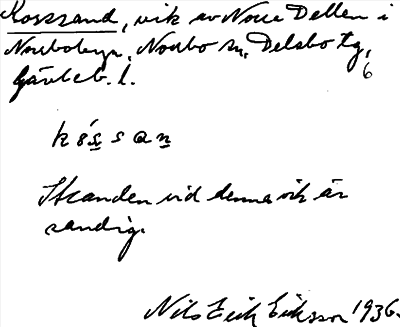 Korssand, vik av Norra Dellen i
Norrbobyn, Norrbo sn, Delsbo tg,
Gävleb. l. 6
kó̱ssaṉ
Stranden vid denna vik är
sandig.
Nils Erik Eriksson 1936.